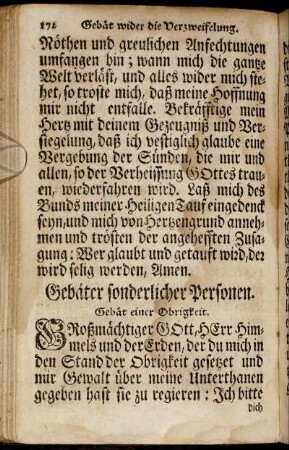 172 Gebät wider die Verzweifelung.
Nöthen und greulichen Anfechtungen
umfangen bin; wann mich die gantze
Welt verläst, und alles wider mich ste-
het, so troste mich, daß meine Hoffnung
mir nicht entfalle. Bekräfftige mein
Hertz mit deinem Gezeugniß und Ver-
siegelung, daß ich vestiglich glaube eine
Vergebung der Sünden, die mir und
allen, so der Verheissung GOttes trau-
en, wiederfahren wird. Laß mich des
Bunds meiner Heiligen Tauf eingedenck
seyn, und mich von Hertzengrund anneh-
men und trösten der angehefften Zusa-
gung: Wer glaubt und getauft wird, der
wird selig werden, Amen.
Gebäter sonderlicher Personen.
Gebät einer Obrigkeit.
GRoßmächtiger GOtt, HErr Him-
mels und der Erden, der du mich in
den Stand der Obrigkeit gesetzet und
mir Gewalt über meine Unterthanen
gegeben hast sie zu regieren: Ich bitte
dich